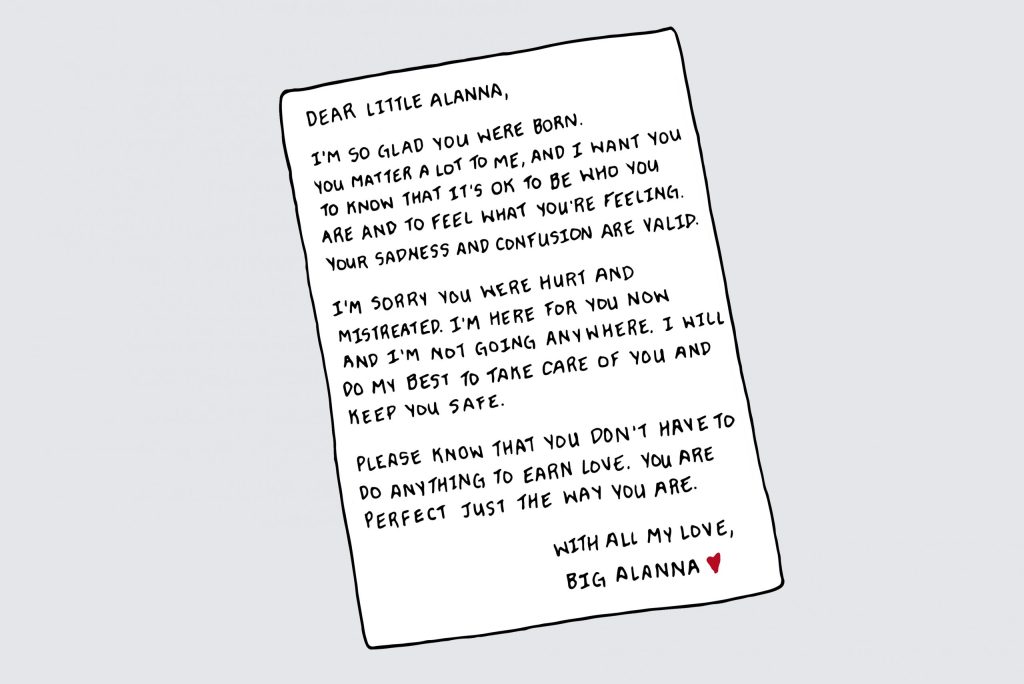 DEAR LITTLE ALANNA,
I'M SO GLAD YOU WERE BORN.
YOU MATTER A LOT TO ME, AND I WANT YOU
TO KNOW THAT IT'S OK TO BE WHO YOU
ARE AND TO FEEL WHAT YOU'RE FEELING.
YOUR SADNESS AND CONFUSION ARE VALID.
I'M SORRY YOU WERE HURT AND
MISTREATED. I'M HERE FOR YOU NOW
AND I'M NOT GOING ANYWHERE. I WILL
DO MY BEST TO TAKE CARE OF YOU AND
KEEP YOU SAFE.
PLEASE KNOW THAT YOU DON'T HAVE TO
DO ANYTHING TO EARN LOVE. YOU ARE
PERFECT JUST THE WAY YOU ARE.
WITH ALL MY LOVE,
BIG ALANNA